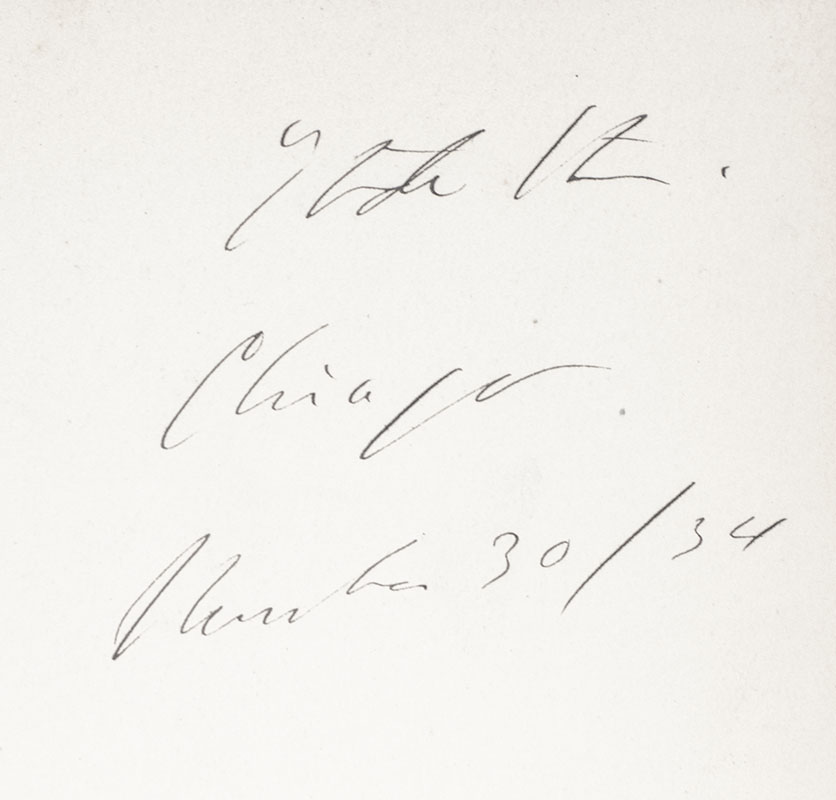 Gertrude Stein.
Chicago.
November 30/34